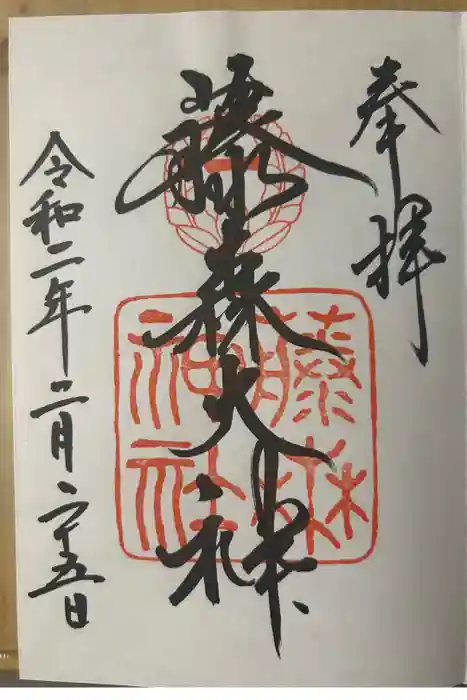 奉拝
藤森大神
藤森
神社
令和二年二月二十五日